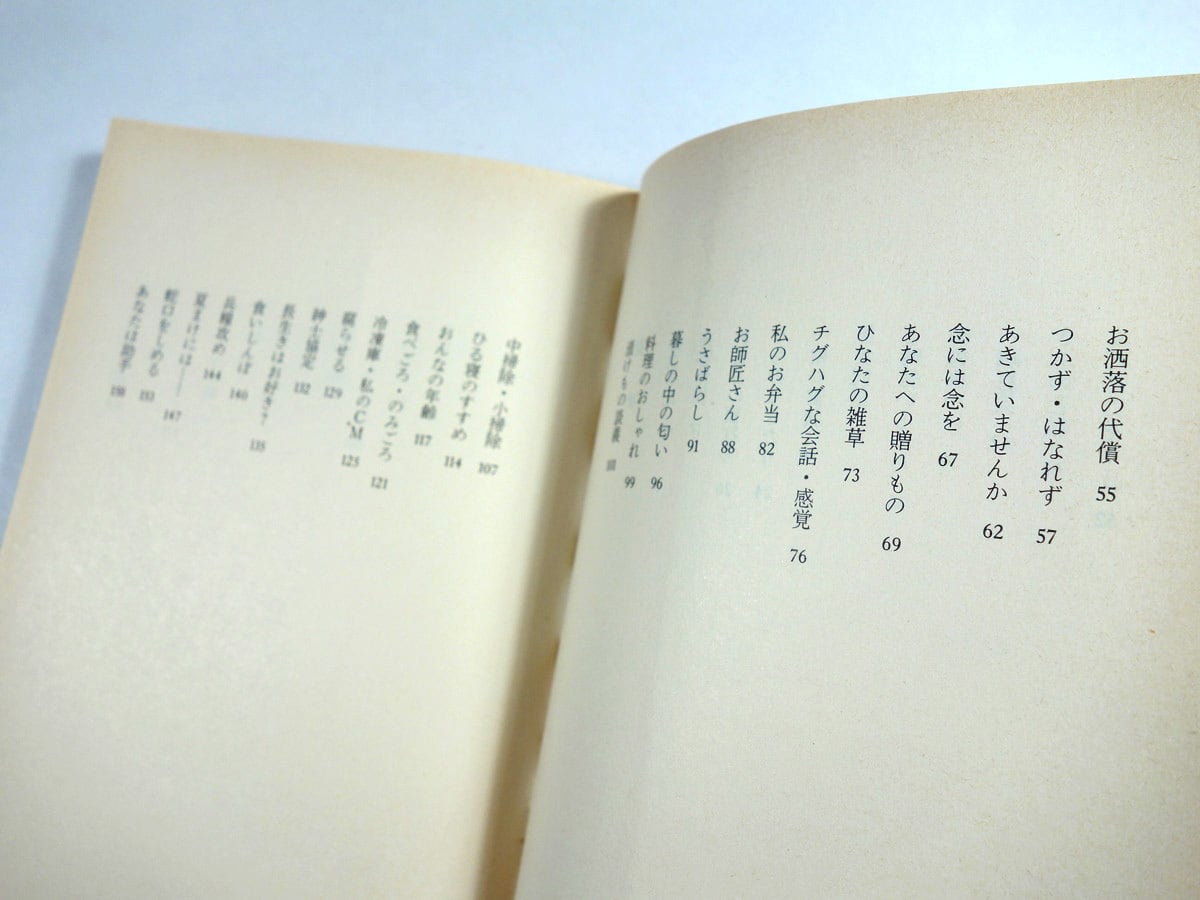 お洒落の代償 55
つかず・はなれず 57
あきていませんか 62
念には念を 67
あなたへの贈りもの 69
ひなたの雑草 73
チグハグな会話・感覚 76
私のお弁当 82
お師匠さん 88
うさばらし 91
暮しの中の匂い 96
料理のおしゃれ 99
漬けもの談義
中掃除・小掃除 107
ひる寝のすすめ 114
おんなの年齢 117
食べごろ・のみごろ 121
冷凍庫・私のC・M 125
腐らせる 129
紳士協定 132
長生きはお好き? 135
食いしんぼ 140
兵糧攻め 144
夏まけには―― 147
蛇口をしめる 151
あなたは助手